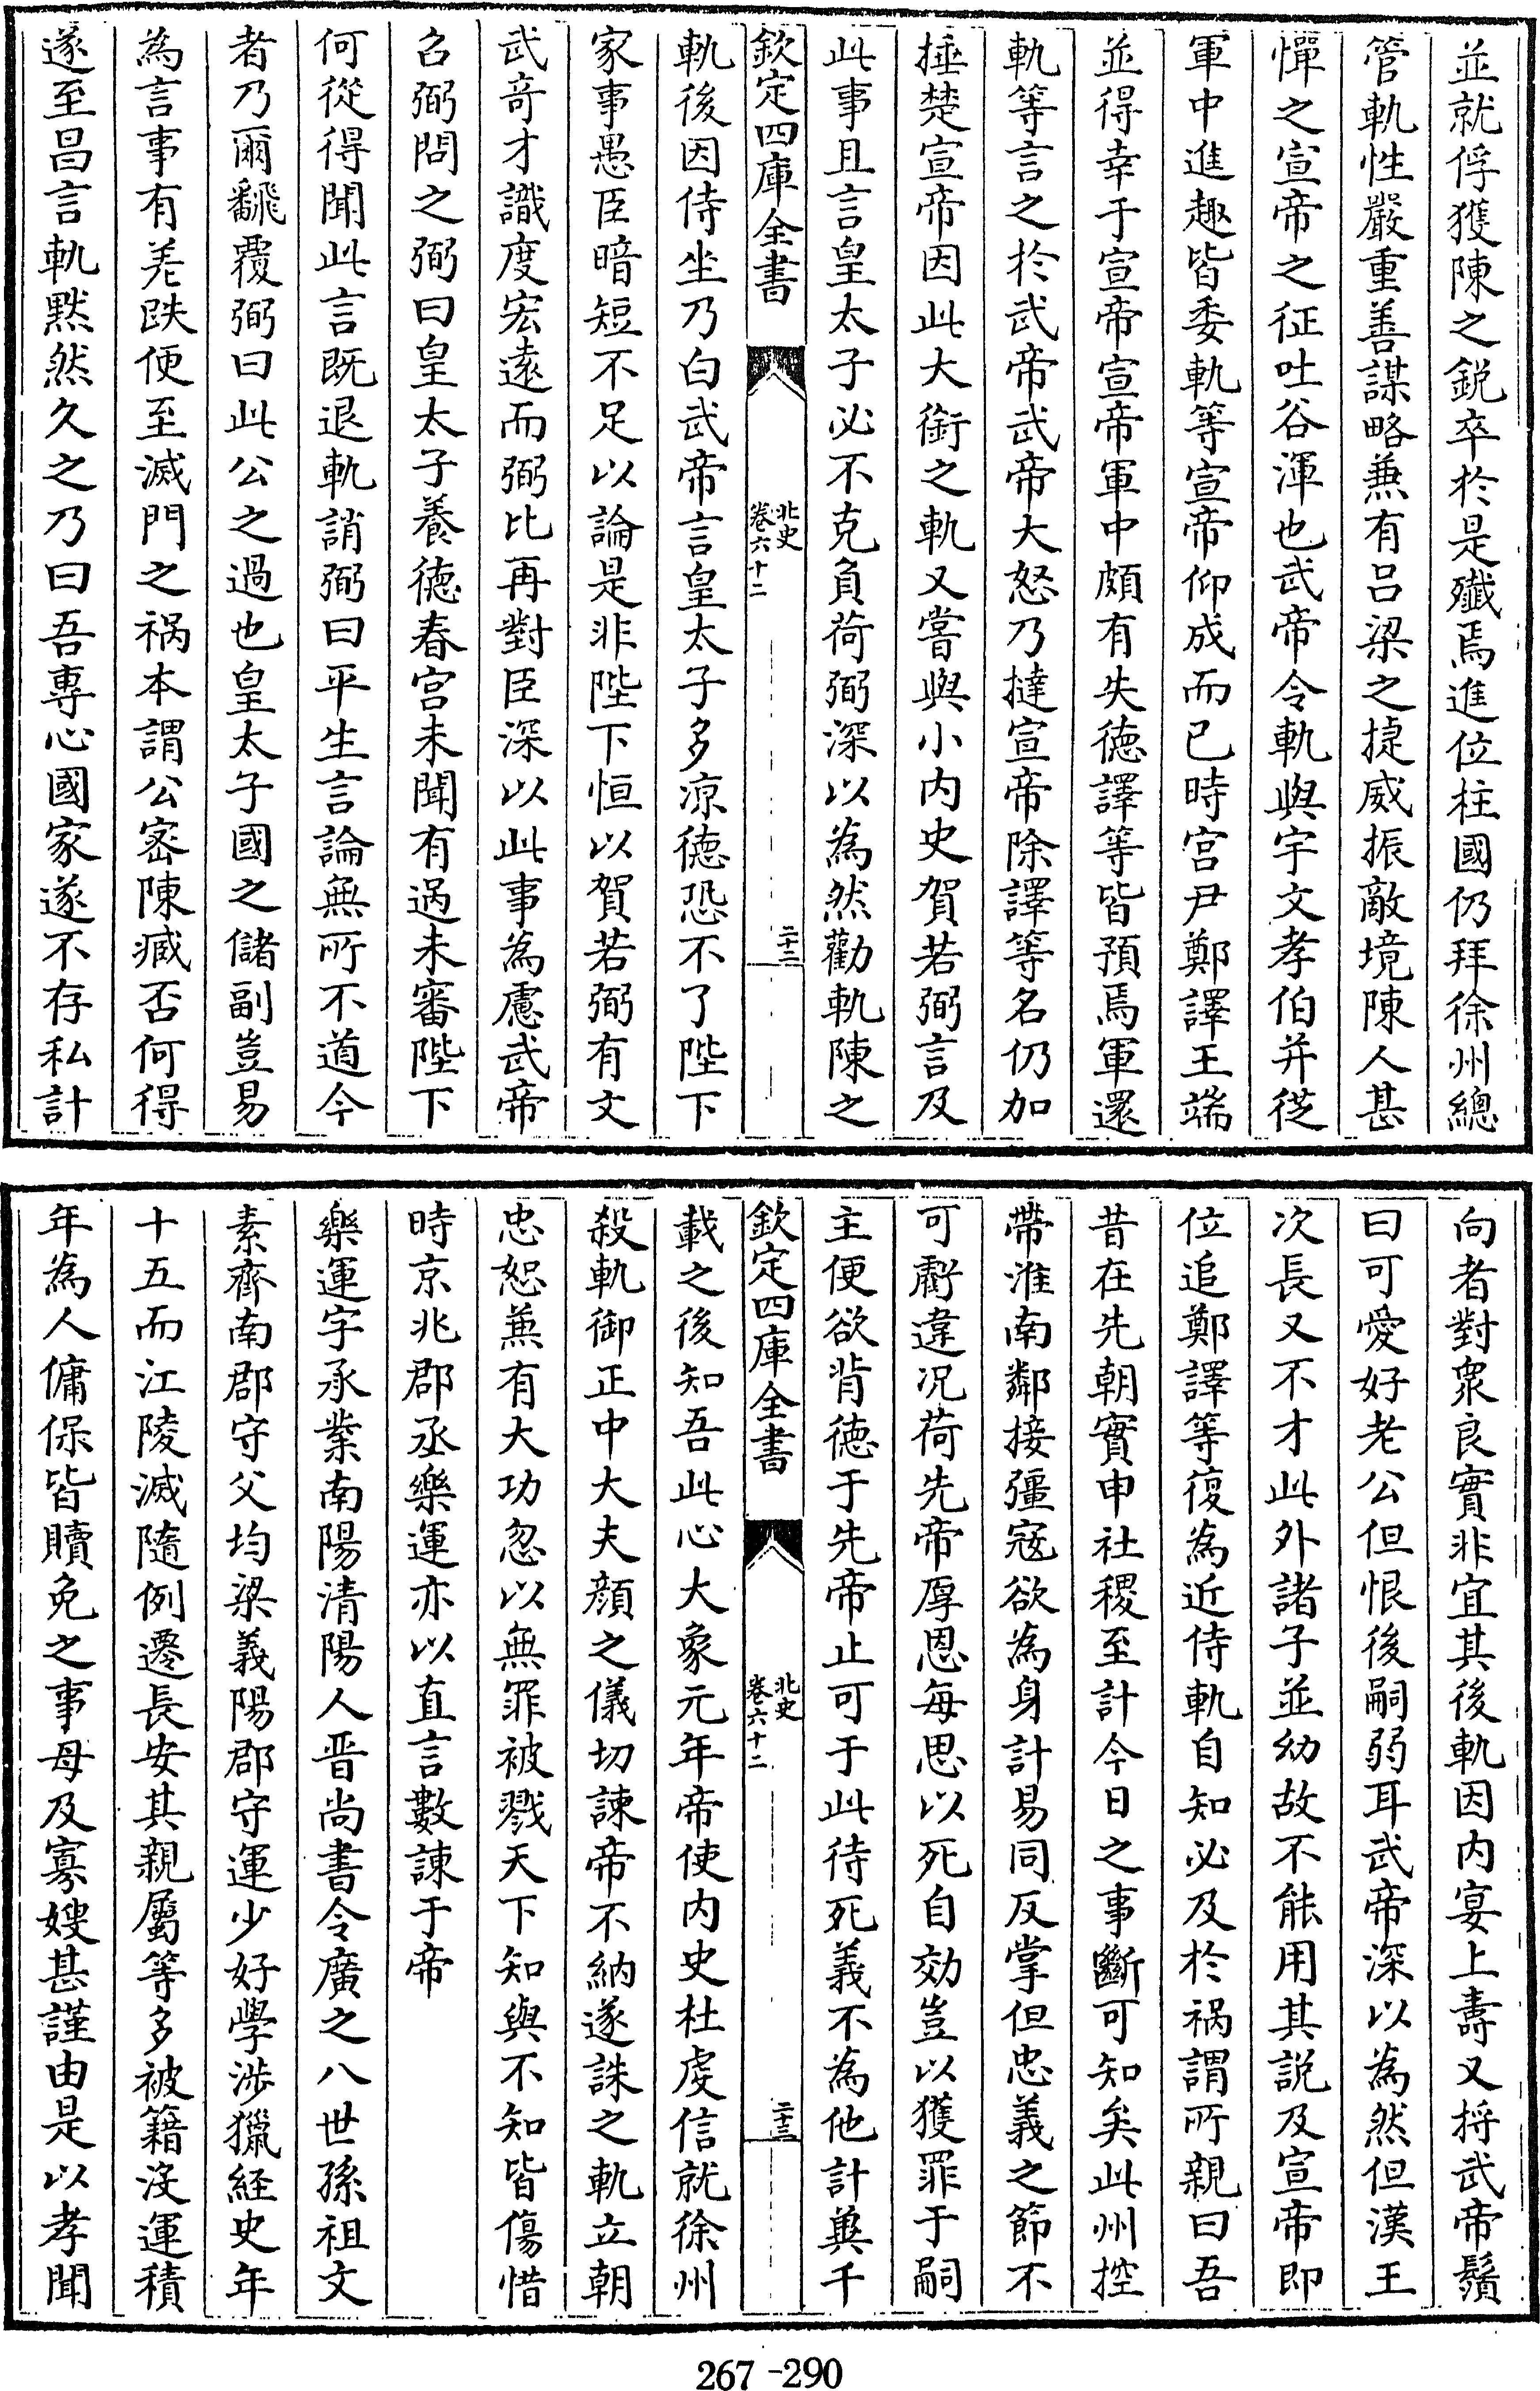 並就俘獲陳之鋭卒於是殱焉進位柱國仍拜徐州緫
管軌性嚴重善謀略兼有吕梁之捷威振敵境陳人甚
憚之宣帝之征吐谷渾也武帝令軌與宇文孝伯并從
軍中進趣皆委軌等宣帝仰成而已時宫尹鄭譯王端
並得幸于宣帝宣帝軍中頗有失徳譯等皆預焉軍還
軌等言之於武帝武帝大怒乃撻宣帝除譯等名仍加
捶楚宣帝因此大銜之軌又嘗與小内史賀若弼言及
此事且言皇太子必不克負荷弼深以為然勸軌陳之
欽定四庫全書
北史
卷六十二
二十二
軌後因侍坐乃白武帝言皇太子多凉徳恐不了陛下
家事愚臣暗短不足以論是非陛下恒以賀若弼有文
武竒才識度宏遠而弼比再對臣深以此事為慮武帝
召弼問之弼曰皇太子養徳春宫未聞有過未審陛下
何從得聞此言既退軌誚弼曰平生言論無所不道今
者乃爾飜覆弼曰此公之過也皇太子國之儲副豈易
為言事有差跌便至滅門之禍本謂公宻陳臧否何得
遂至昌言軌黙然久之乃曰吾專心國家遂不存私計
向者對衆良實非宜其後軌因内宴上壽又捋武帝鬚
曰可愛好老公但恨後嗣弱耳武帝深以為然但漢王
次長又不才此外諸子並幼故不能用其説及宣帝即
位追鄭譯等復為近侍軌自知必及於禍謂所親曰吾
昔在先朝實申社稷至計今日之事斷可知矣此州控
帶淮南鄰接彊寇欲為身計易同反掌但忠義之節不
可虧違况荷先帝厚恩每思以死自効豈以獲罪于嗣
主便欲背徳于先帝止可于此待死義不為他計冀千
欽定四庫全書
北史
卷六十二
二十三
載之後知吾此心大象元年帝使内史杜虔信就徐州
殺軌御正中大夫顔之儀切諫帝不納遂誅之軌立朝
忠恕兼有大功忽以無罪被戮天下知與不知皆傷惜
時京兆郡丞樂運亦以直言數諫于帝
樂運字承業南陽清陽人晋尚書令廣之八世孫祖文
素齊南郡守父均梁義陽郡守運少好學涉獵經史年
十五而江陵滅隨例遷長安其親屬等多被籍沒運積
年為人傭保皆贖免之事母及寡嫂甚謹由是以孝聞
267-290